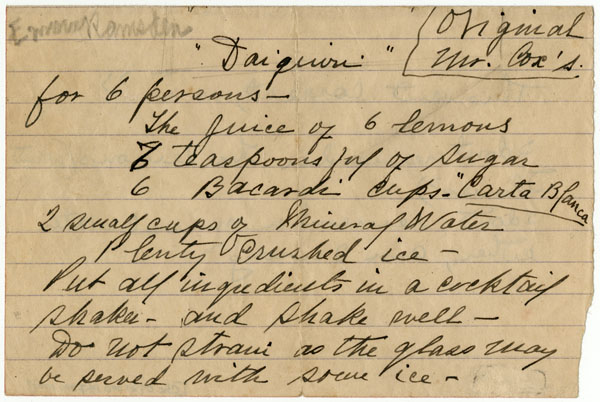 Original
Mr. Cox's.
"Daiquiri"
for 6 persons—
The juice of 6 lemons
6 teaspoonsful of sugar
6 Bacardi cups—"Carta Blanca
2 small cups of Mineral Water
Plenty crushed ice—
Put all ingredients in a cocktail
shaker— and shake well—
Do not strain as the glass may
be served with some ice—